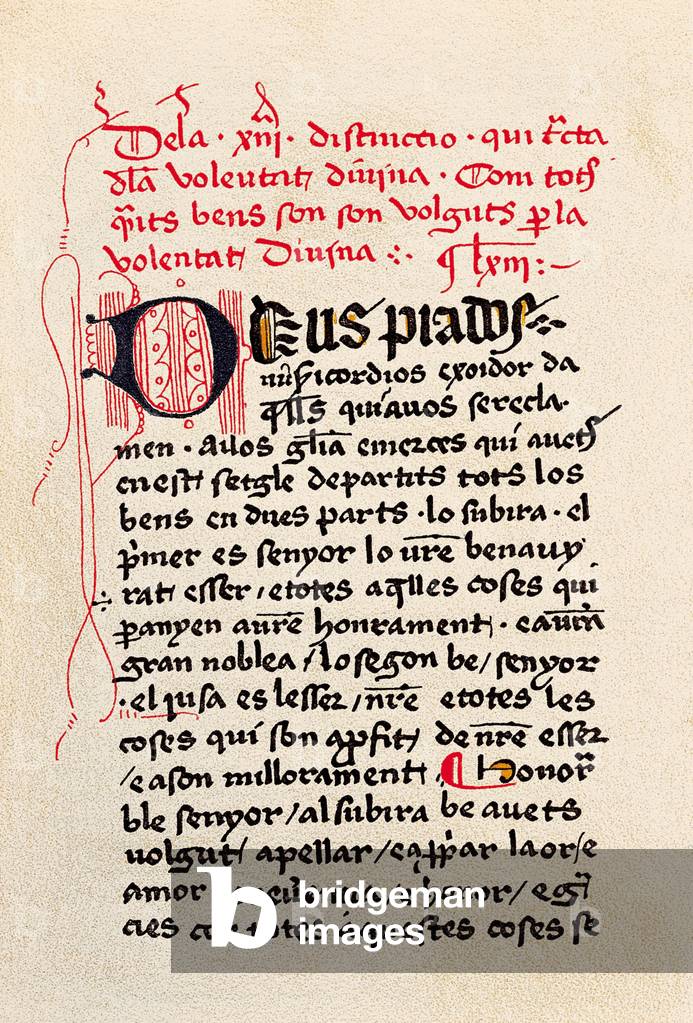 Dela · xiij · distinccio · qui tcta
dla volentat diuina · Com tots
qits bens son son volguts p la
volentat Diuina
lxiij :—
Deus piados
misicordios exoidor da
qlls qui auos serecla-
men · auos glia emerces qui auets
en est setgle departits tots los
bens en dues parts · lo subira · el
pmer es senyor lo ure benauy
rat esser / e totes aqlles coses qui
panyen aure honrament · e a ura
gran noblea / lo segon be / senyor
· el jusa es lesser / nre e totes les
coses qui son a pfit de nre esser
/ e a son millorament Honor
ble senyor / al subira be auets
volgut apellar / laor / e
amor
cies coses se
bridgeman
images
b